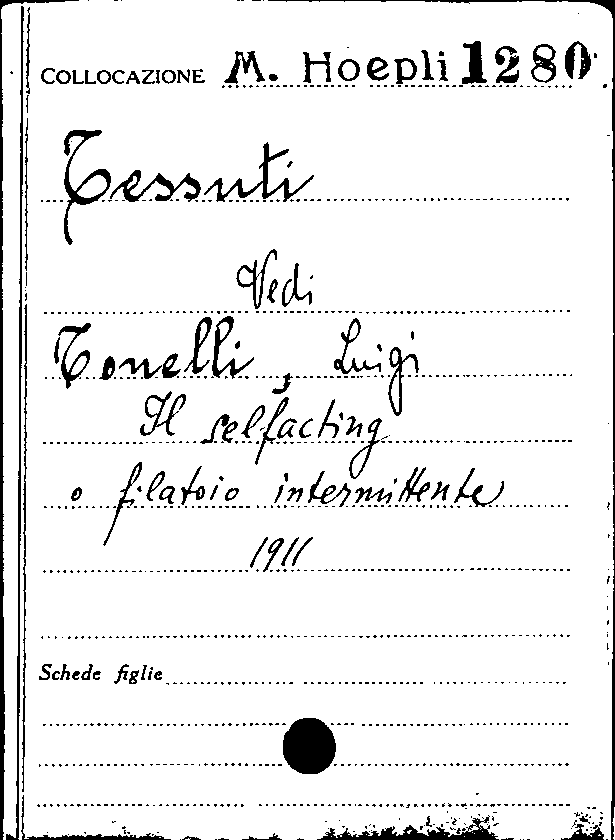 COLLOCAZIONE M. Hoepli 1280
Tessuti
Vedi
Tonelli, Luigi
Il selfacting
o filatoio intermittente
1911
Schede figlie